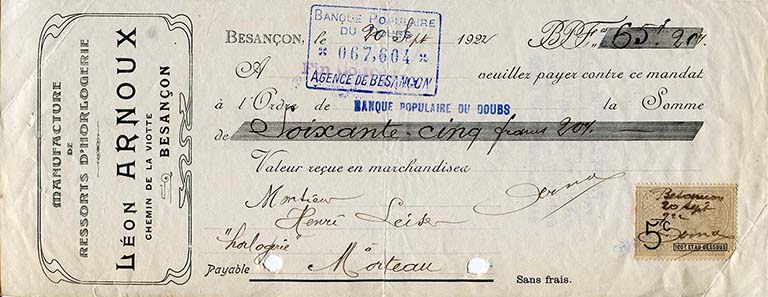 MANUFACTURE
DE
RESSORTS D'HORLOGERIE
LÉON ARNOUX
CHEMIN DE LA VIOTTE
BESANÇON
BESANÇON, le 20 Sept 1922 BPF. 65f 20c.
BANQUE POPULAIRE
DU DOUBS
067,604
AGENCE DE BESANÇON
A veuillez payer contre ce mandat
à l'Ordre de BANQUE POPULAIRE DU DOUBS la Somme
de Soixante-cinq francs 20c.
Valeur reçue en marchandises
Monsieur
Henri
"horlogerie"
à
Payable Morteau Sans frais.
Besançon
20 Sept
922
5c
100F ET AU-DESSOUS